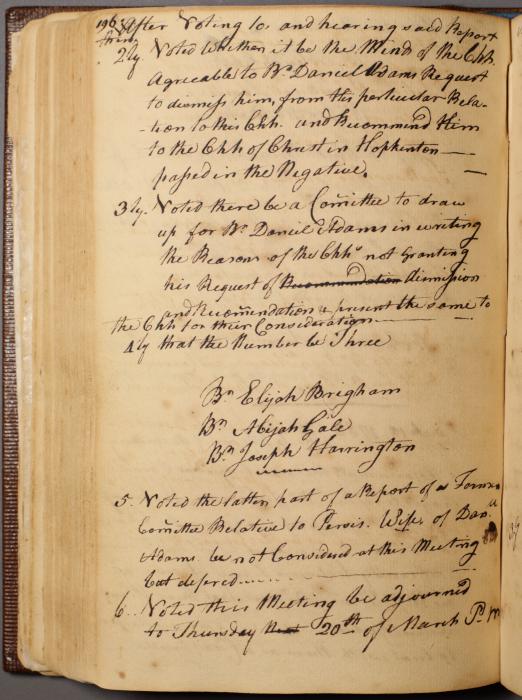 196 After Voting to, and hearing said Report
2ly Voted whether it be the Mind of the Chh.
Agreable to Br. Daniel Adams Request
to dismiss him, from His perticular Rela-
-tion to this Chh. and Recommend Him
to the Chh of Christ in Hopkinton—
passed in the Negative.
3ly. Voted there be a Comittee to draw
up for Br. Daniel Adams in writing
the Reasons of the Chhs not Granting
his Request of Recommendation dismission
and Recomendation & present the same to
the Chh for their Consideration
4ly that the Number be Three
Bn Elijah Brigham
Bn Abijah Gale
Bn Joseph Harrington
5. Voted the latter part of a Report of a Former
Comittee Relative to Persis. Wife of Danll
Adams. be not Considered at this Meeting
but defered
6. Voted this Meeting be adjourned
to Thursday Next 20th of March